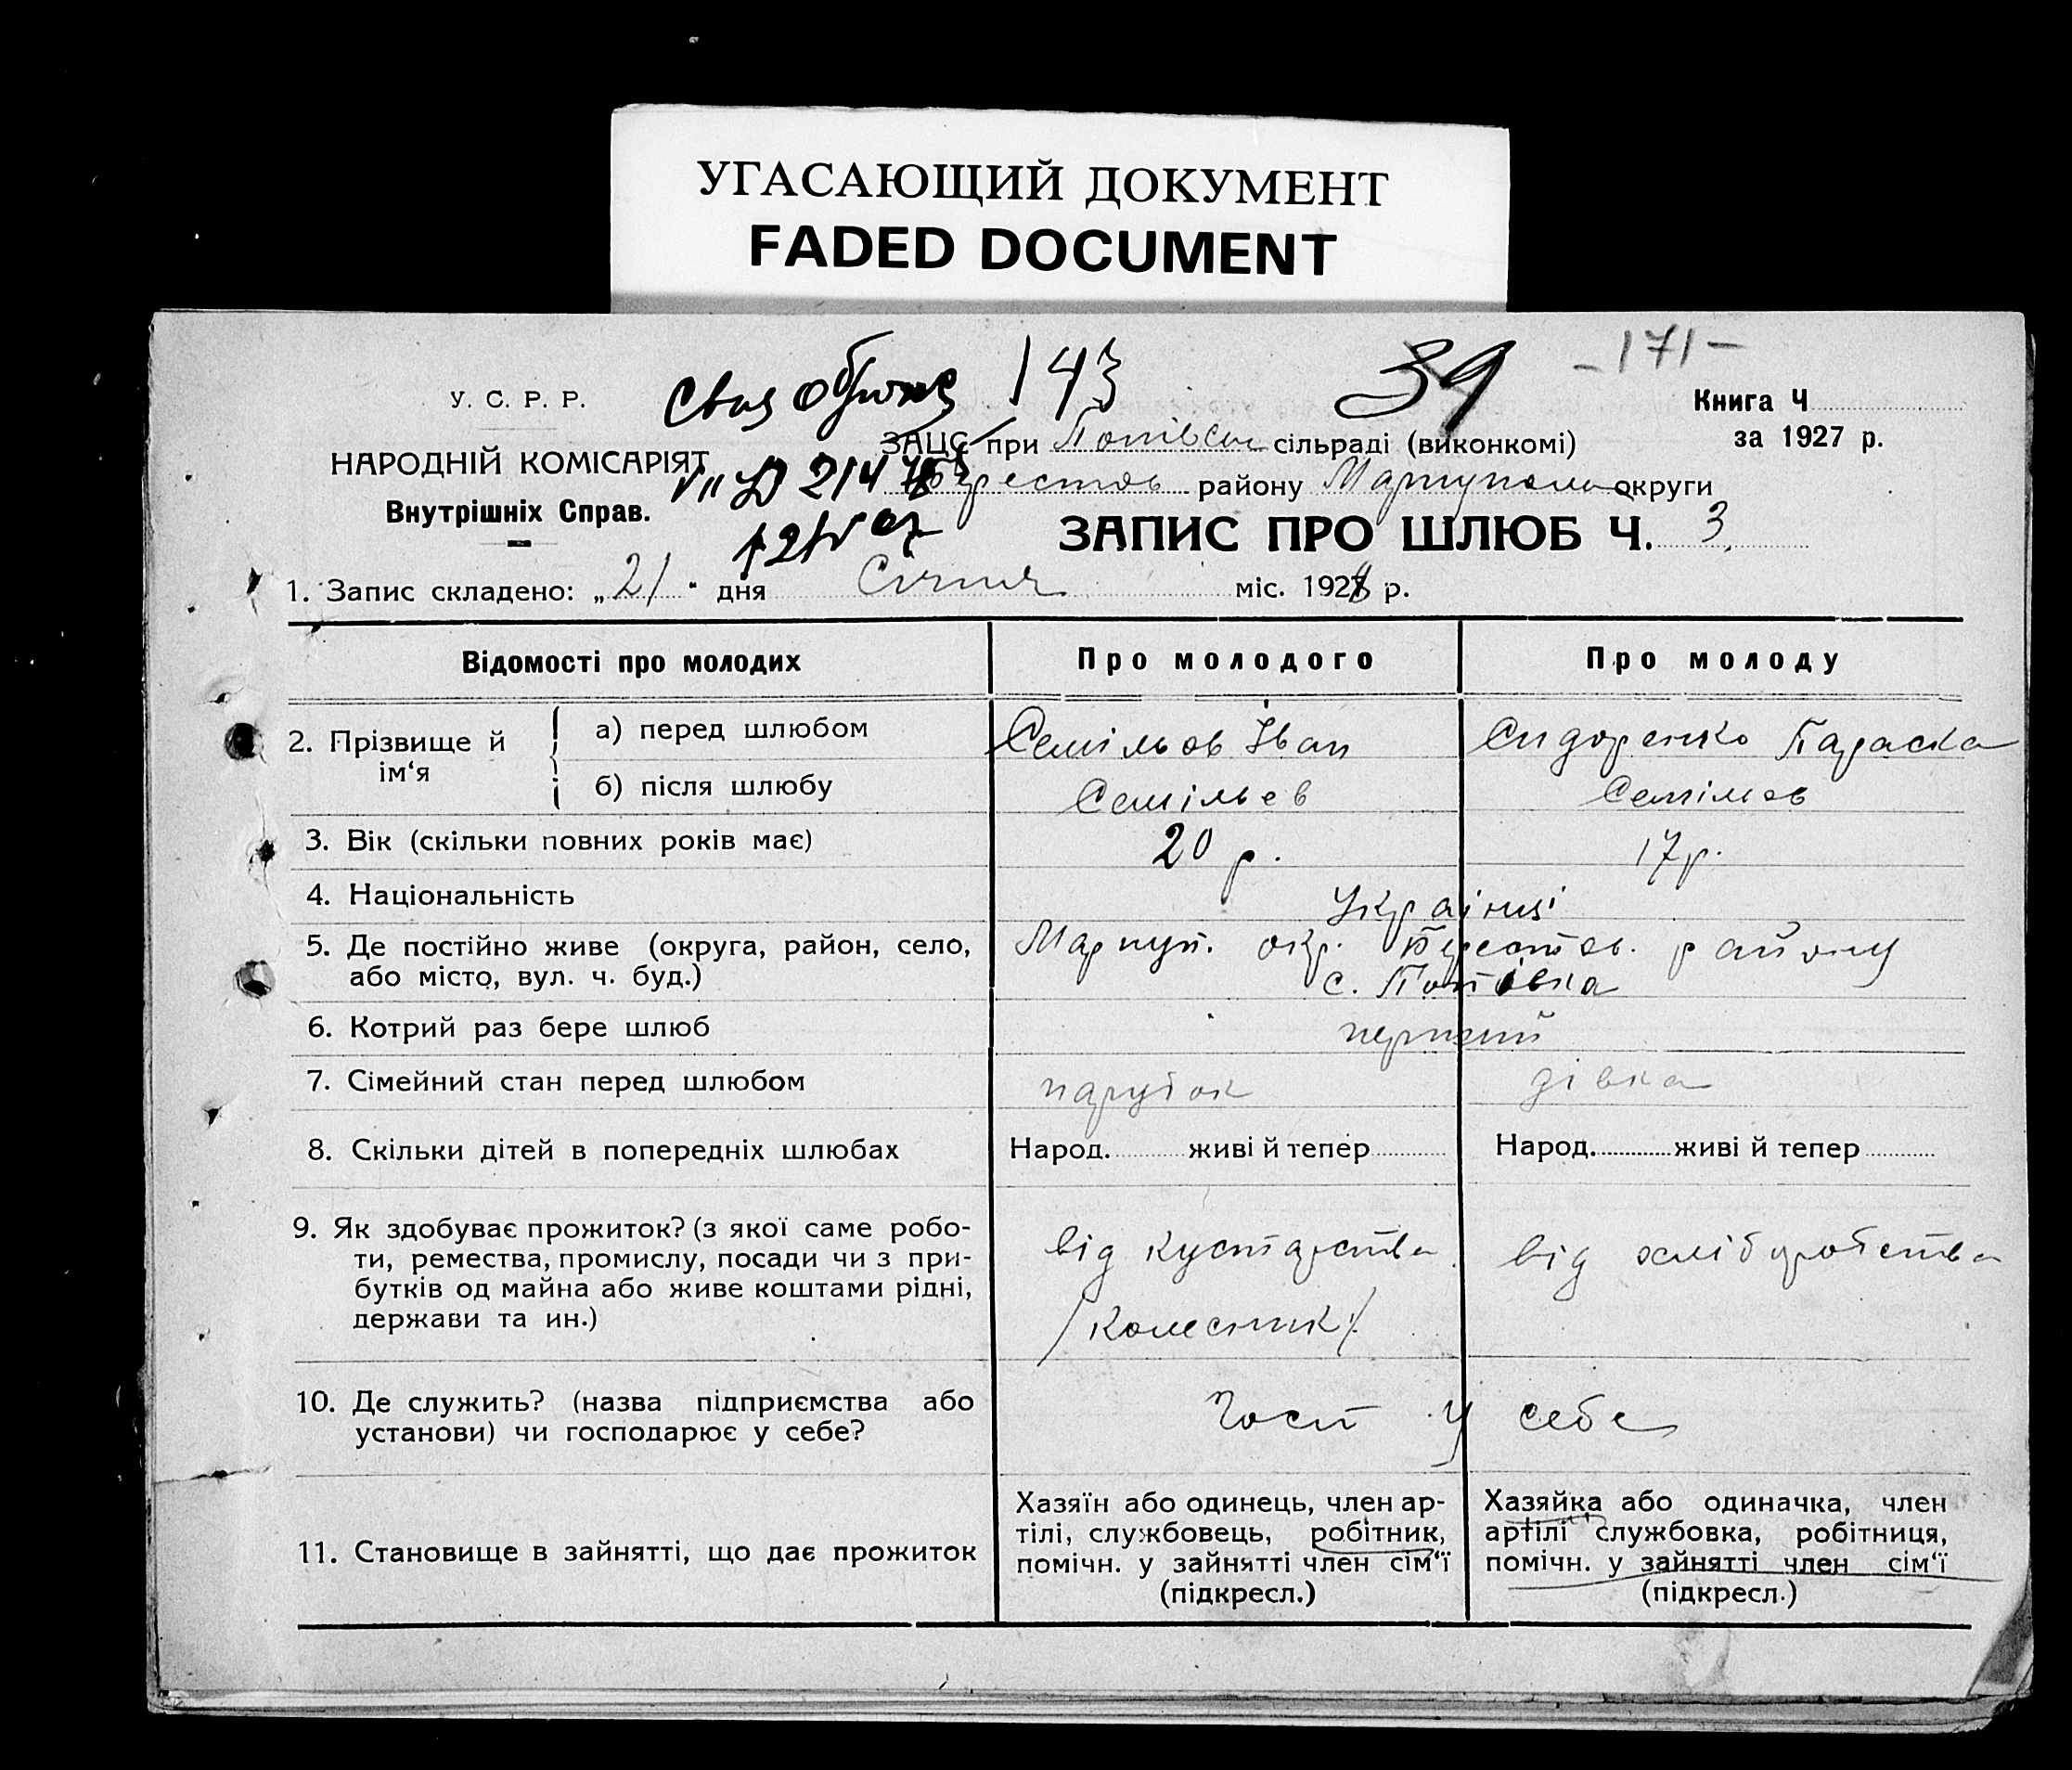 УГАСАЮЩИЙ ДОКУМЕНТ
FADED DOCUMENT
143 39 -171-
У. С. Р. Р.
НАРОДНІЙ КОМІСАРІЯТ
Внутрішніх Справ.
Книга Ч
за 1927 р.
ЗАЦС при сільраді (виконкомі)
Берестов району Мариупол округи
ЗАПИС ПРО ШЛЮБ Ч. 3
1. Запис складено: „21“ дня Січня міс. 1928 р.
Відомості про молодих Про молодого Про молоду
2. Прізвище й ім‘я
а) перед шлюбом Іван Сидоренко Параска
б) після шлюбу
3. Вік (скільки повних років має) 20 р. 17 р.
4. Національність Українці
5. Де постійно живе (округа, район, село, Марпуп. окр. Берестов. району
або місто, вул. ч. буд.) с. Попівка
6. Котрий раз бере шлюб перший
7. Сімейний стан перед шлюбом парубок дівка
8. Скільки дітей в попередніх шлюбах Народ. живі й тепер Народ. живі й тепер
9. Як здобуває прожиток? (з якої саме робо-
ти, ремества, промислу, посади чи з при-
бутків од майна або живе коштами рідні,
держави та ин.)
від кустарства
/колесник/
від хліборобства
10. Де служить? (назва підприємства або
установи) чи господарює у себе?
Госп у себе
11. Становище в зайнятті, що дає прожиток
Хазяїн або одинець, член ар-
тілі, службовець, робітник,
помічн. у зайнятті член сім‘ї
(підкресл.)
Хазяйка або одиначка, член
артілі службовка, робітниця,
помічн. у зайнятті член сім‘ї
(підкресл.)